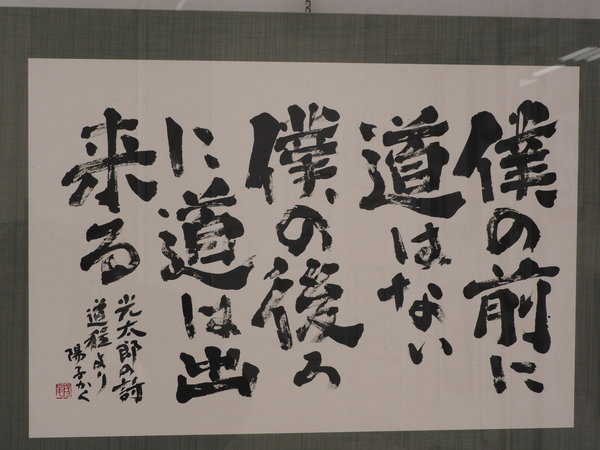 僕の前に
道はない
僕の後ろ
に道は出
来る
光太郎の詩
道程より
陽子かく